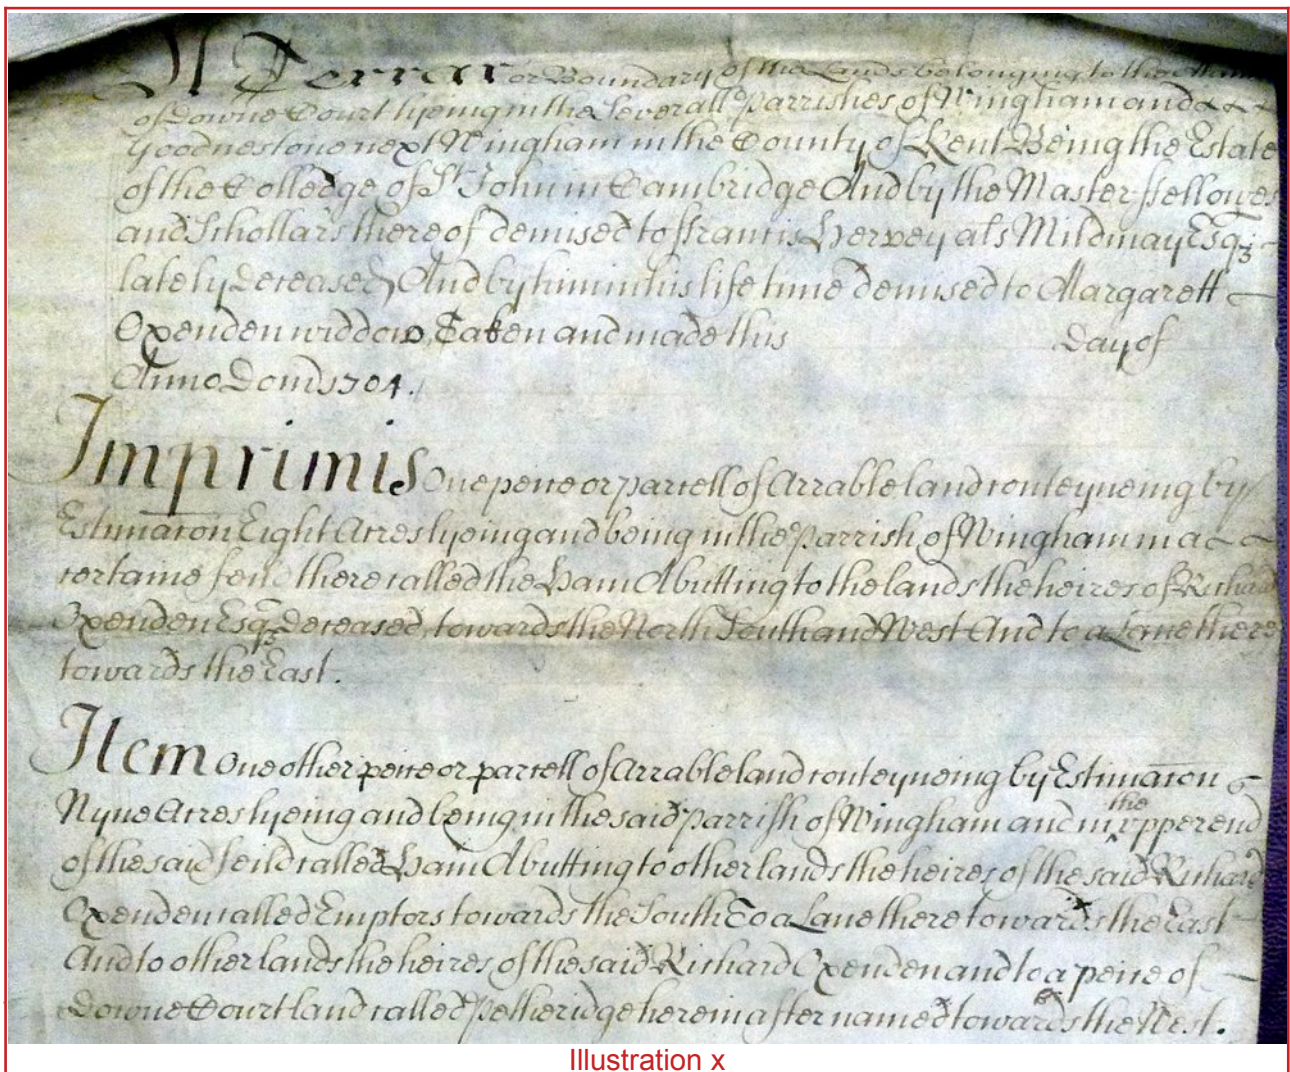 A Terrar or Boundary of the Lands belonging to the
of Downe Court lyeing in the Severall Parrishes of Wingham and
Goodnestone next Wingham in the County of Kent Being the Estate
of the Colledge of St John in Cambridge And by the Master ffellowes
and Schollars thereof demised to ffrancis Hervey als Mildmay Esqz
lately deceased, And by him in his life time demised to Margarett
Oxenden widdow, Taken and made this Day of
Anno Dom 1704.
Imprimis One peice or parcell of Arrable land conteyneing by
Estimacon Eight Acres lyeing and being in the Parrish of Wingham in a
certaine feild there called the Ham Abutting to the lands the heires of Richard
Oxenden Esqz Deceased, towards the North South and West And to a Lane there
towards the East.
Item One other peice or parcell of Arrable land conteyneing by Estimacon
Nyne Acres lyeing and being in the said Parrish of Wingham and in the vpper end
of the said feild called Ham Abutting to other lands the heires of the said Richard
Oxenden called Emptors towards the South To a Lane there towards the East
And to other lands the heires of the said Richard Oxenden and to a peice of
Downe Court land called Petheridge herein after named towards the West.
Illustration x